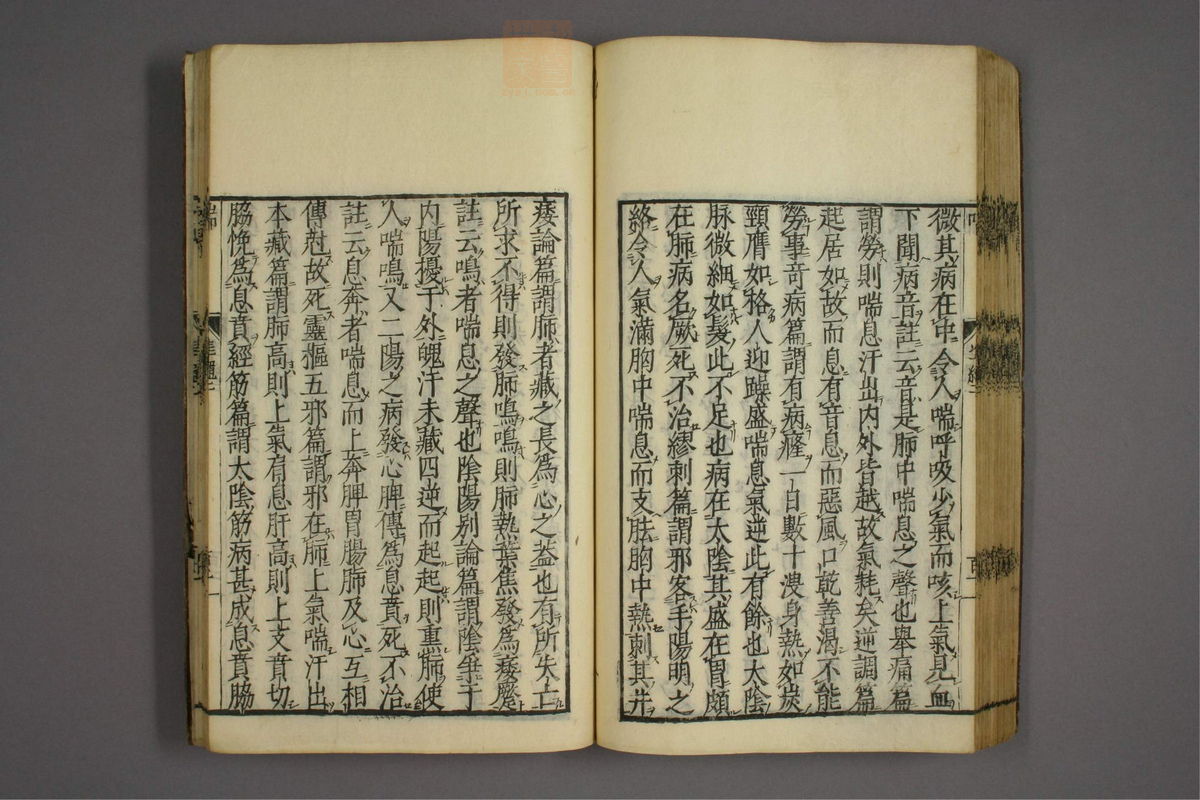 微其病在中令人喘呼吸少氣而咳上氣見血
下聞病音註云音是肺中喘息之聲也舉痛篇
謂勞則喘息汗出内外皆越故氣耗矣逆調篇
起居如故而息有音息而惡風口乾善渴不能
勞事奇病篇謂有病癃一日數十溲身熱如炭
頸膺如格人迎躁盛喘息氣逆此有餘也太陰
脉微細如髮此不足也病在太陰其盛在胃頗
在肺病名厥死不治繆刺篇謂邪客手陽明之
絡令人氣滿胸中喘息而支胠胸中熱刺其井
痿論篇謂肺者藏之長爲心之葢也有所失亡
所求不得則發肺鳴鳴則肺熱葉焦發爲痿躄
註云鳴者喘息之聲也陰陽别論篇謂陰爭于
内陽擾于外魄汗未藏四逆而起起則熏肺使
人喘鳴又二陽之病發心脾傳爲息賁死不治
註云息奔者喘息而上奔脾胃腸肺及心互相
傳尅故死靈樞五邪篇謂邪在肺上氣喘汗出
本藏篇謂肺高則上氣肩息肝高則上支賁切
脇悗爲息賁經筋篇謂太陰筋病甚成息賁脇
喘